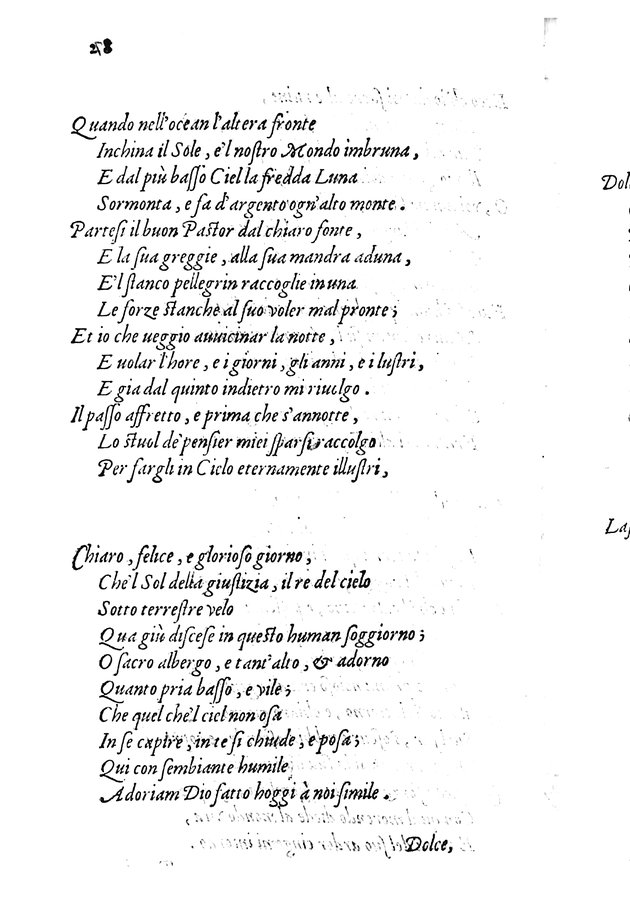 278
Quando nell'ocean l'altera fronte
Inchina il Sole, e'l nostro Mondo imbruna,
E dal più basso Ciel la fredda Luna
Sormonta, e fa d'argento ogn'alto monte.
Partesi il buon Pastor dal chiaro fonte,
E la sua greggie, alla sua mandra aduna,
E'l stanco pellegrin raccoglie in una
Le forze stanche al suo voler mal pronte;
Et io che ueggio auuicinar la notte,
E uolar l'hore, e i giorni, gli anni, e i lustri,
E gia dal quinto indietro mi riuolgo.
Il passo affretto, e prima che s'annotte,
Lo stuol de' pensier miei sparsi raccolgo
Per fargli in Cielo eternamente illustri,
Chiaro, felice, e glorioso giorno,
Che'l Sol della giustizia, il re del cielo
Sotto terrestre velo
Qua giù discese in questo human soggiorno;
O sacro albergo, e tant'alto, & adorno
Quanto pria basso, e vile;
Che quel che'l ciel non osa
In se capire, in te si chiude, e posa;
Qui con sembiante humile
Adoriam Dio fatto hoggi à noi simile.
Dolce,